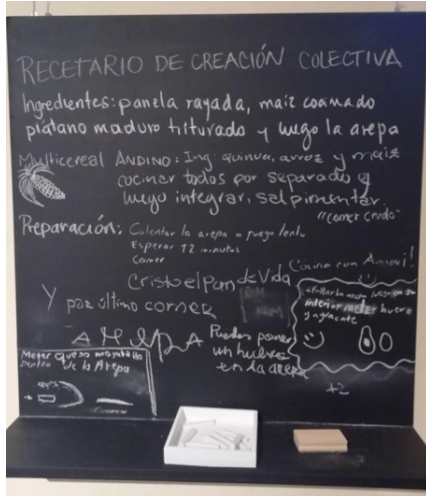 RECETARIO DE CREACIÓN COLECTIVA
Ingredientes: panela rayada, maiz cocinado
plátano maduro triturado y luego la arepa
Multicereal ANDINO: Ing. quinua, arroz y maiz
cocinar todos por separado y
luego integrar, sal pimentar.
"comer crudo"
Preparación: Calentar la arepa a fuego lento
Esperar 12 minutos
Comer
Cristo el pan de Vida
Cocina con Amor!
Y por último comer
AREPA
Puedes poner
un huevo
en la arepa
Meter queso
Dentro de la Arepa
interior meter huevo
y aguacate
+2